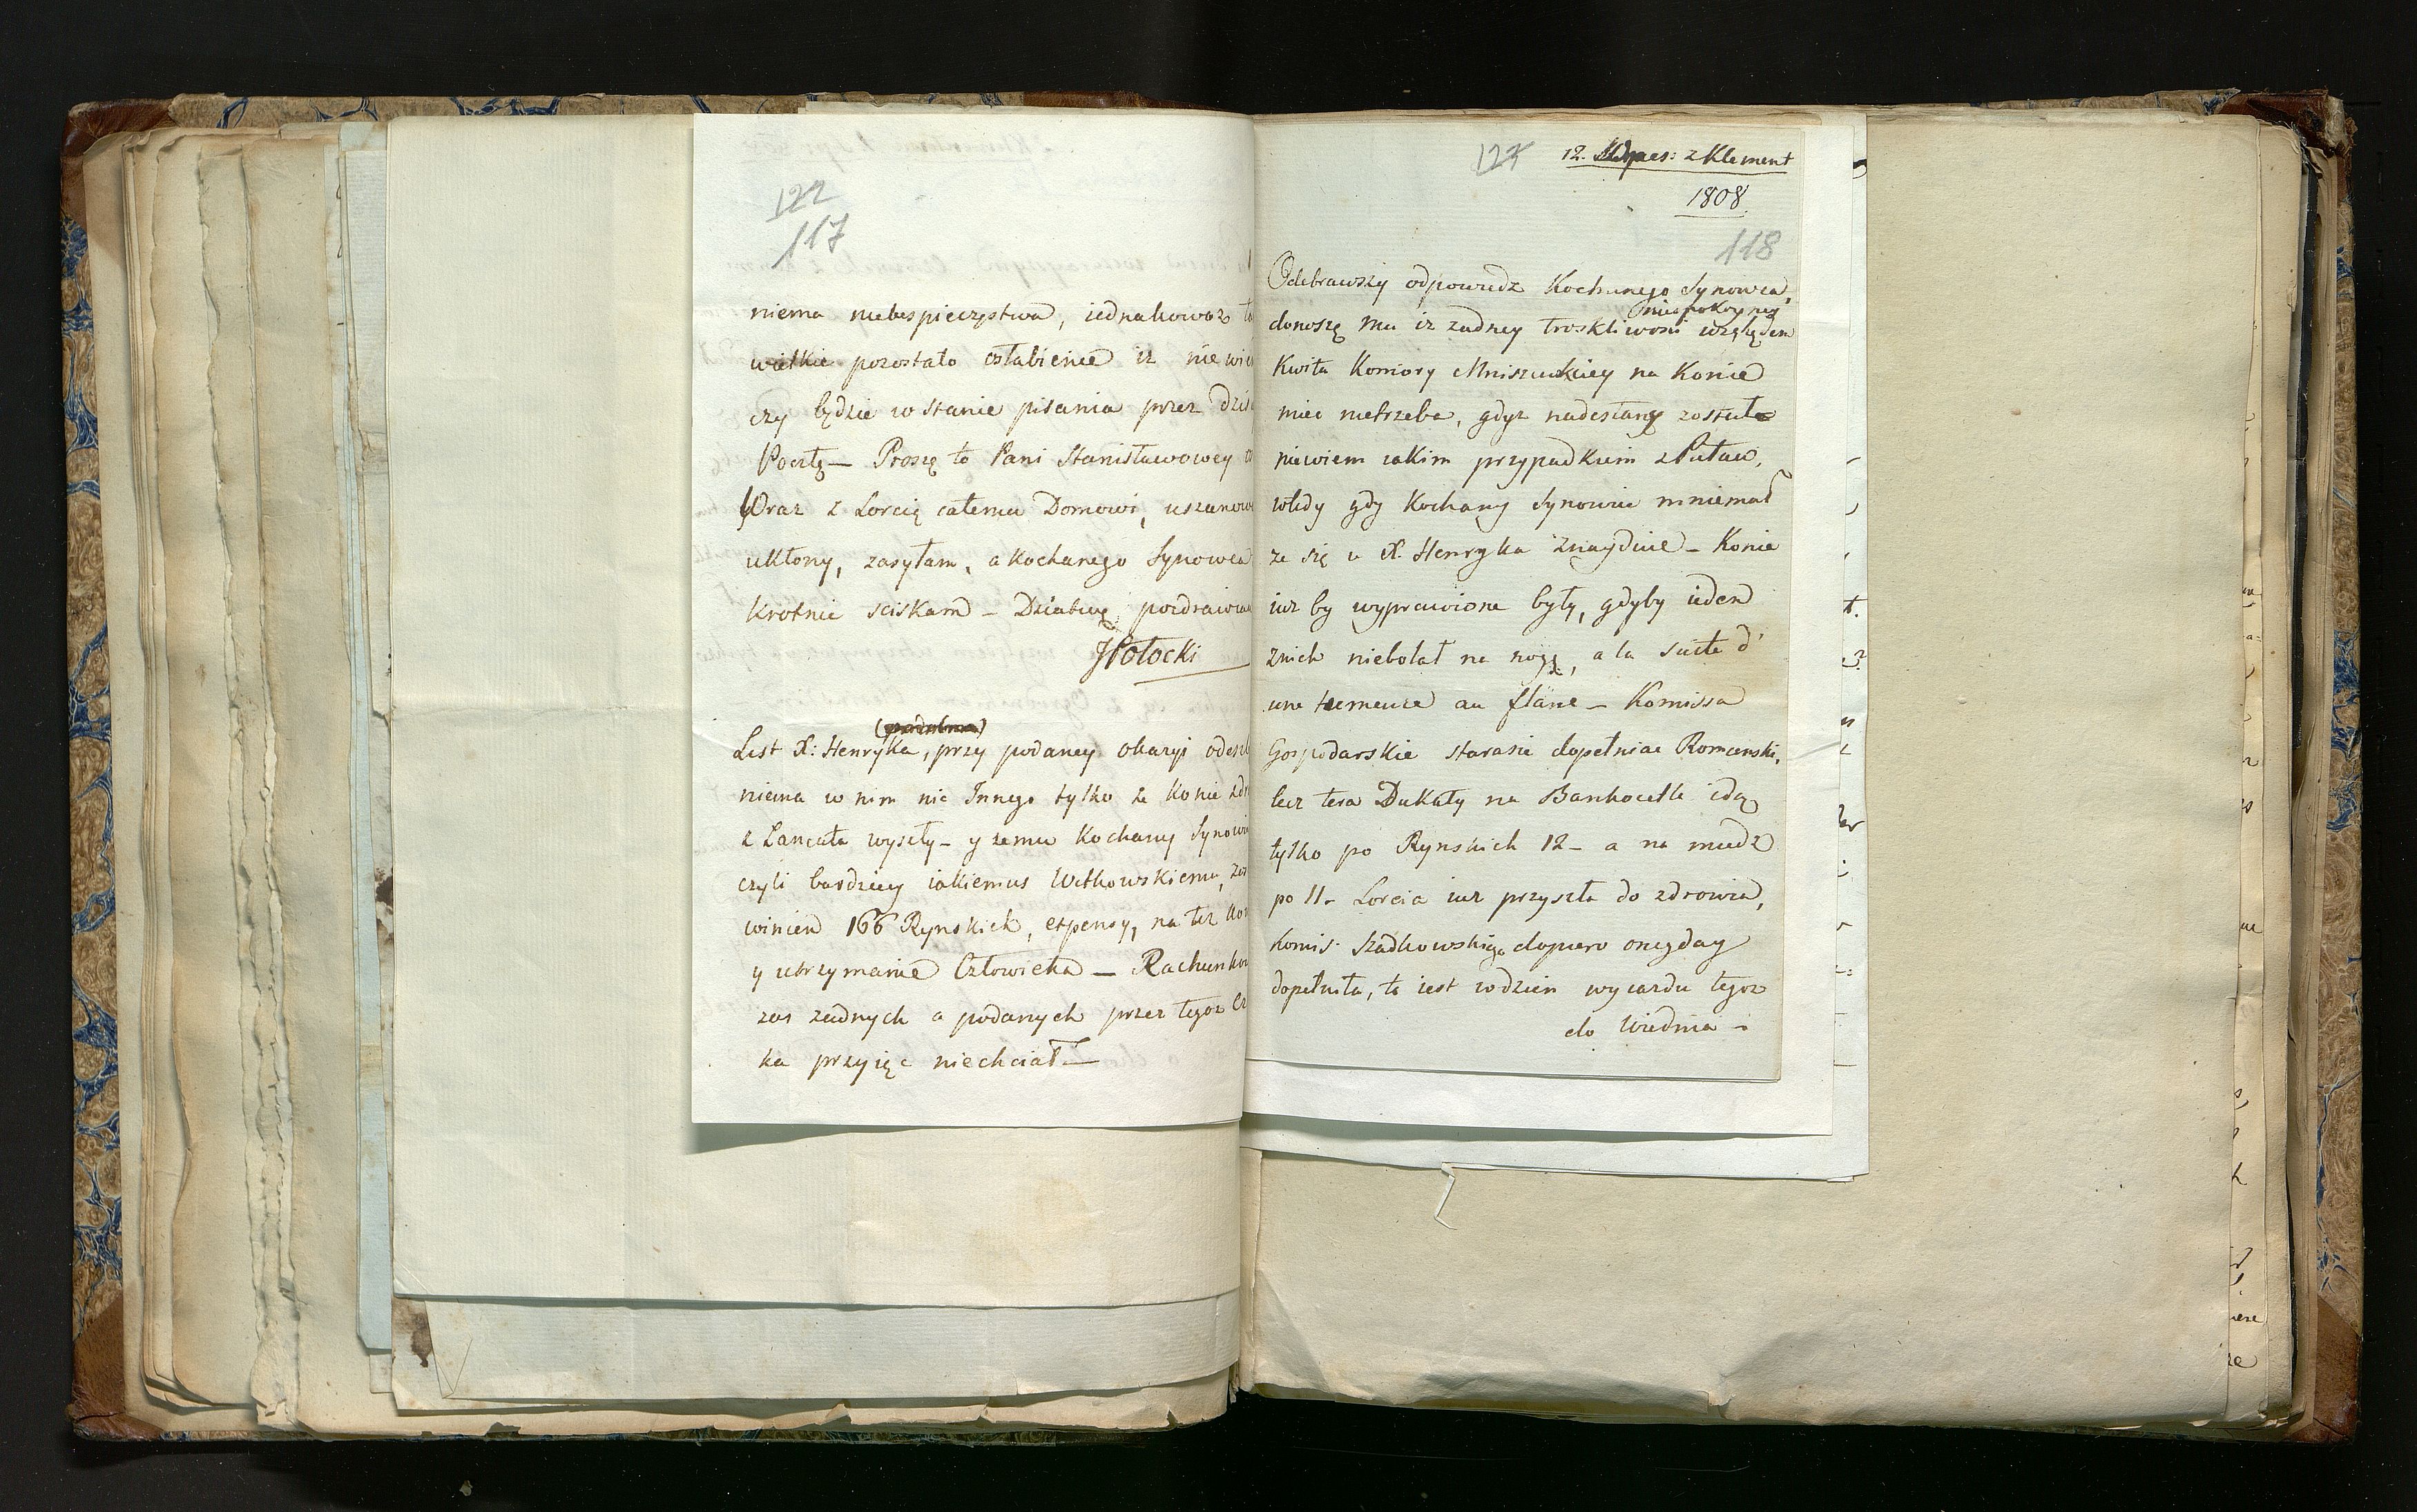 122
117
niema niebespieczęstwa, iednakowoz ta
wielkie pozostało osłabienie iz nie wie
czy będzie w stanie pisania przez dzis
Pocztę — Proszę to Pani Stanisławowey
Wraz z Lorcią całemu Domowi, uszanow
ukłony, zasyłam, a kochanego Synowca
krotnie sciskam – Dziatwę pozdrawia
JPotocki
List X: Henryka, przy podaney okazyi odeszl
niema w nim nic Innego tylko ze konie zdr
z Lancuta wyszły – y zemu Kochany Synowi
czyli bardziey iakiemus Witkowskiemu, zos
winien 166 Rynskich, expensy, na tez kon
y utrzymanie Człowieka — Rachunkow
zas zadnych a podanych przez tegoz Cz
ka przyiąc niechciał —
12. z Klement
1808.
118
Odebrawszy odpowiedz Kochanego Synowca,
niespokoyney
donoszę mu iz zadney troskliwosci względem
Kwitu Komory Mniszewskiey na Konie
miec nietrzeba, gdyz nadesłany został
niewiem iakim przypadkiem z Puław,
wtedy gdy Kochany Synowiec mniemał
ze się u X. Henryka znayduie – Konie
iuz by wyprawione były, gdyby ieden
znich niebolał na nogę, a la suite d'
une tumeure au flanc – Komissa
Gospodarskie starasie dopełniac Romanski,
lecz tera Dukaty na Bankocetle idą
tylko po Rynskich 12 – a na miedz
po 11 – Lorcia iuz przyszła do zdrowia,
Komis: Szadkowskiego dopiero onegday
dopełniła, to iest w dzien wyiazdu tegoz
do Wiednia –